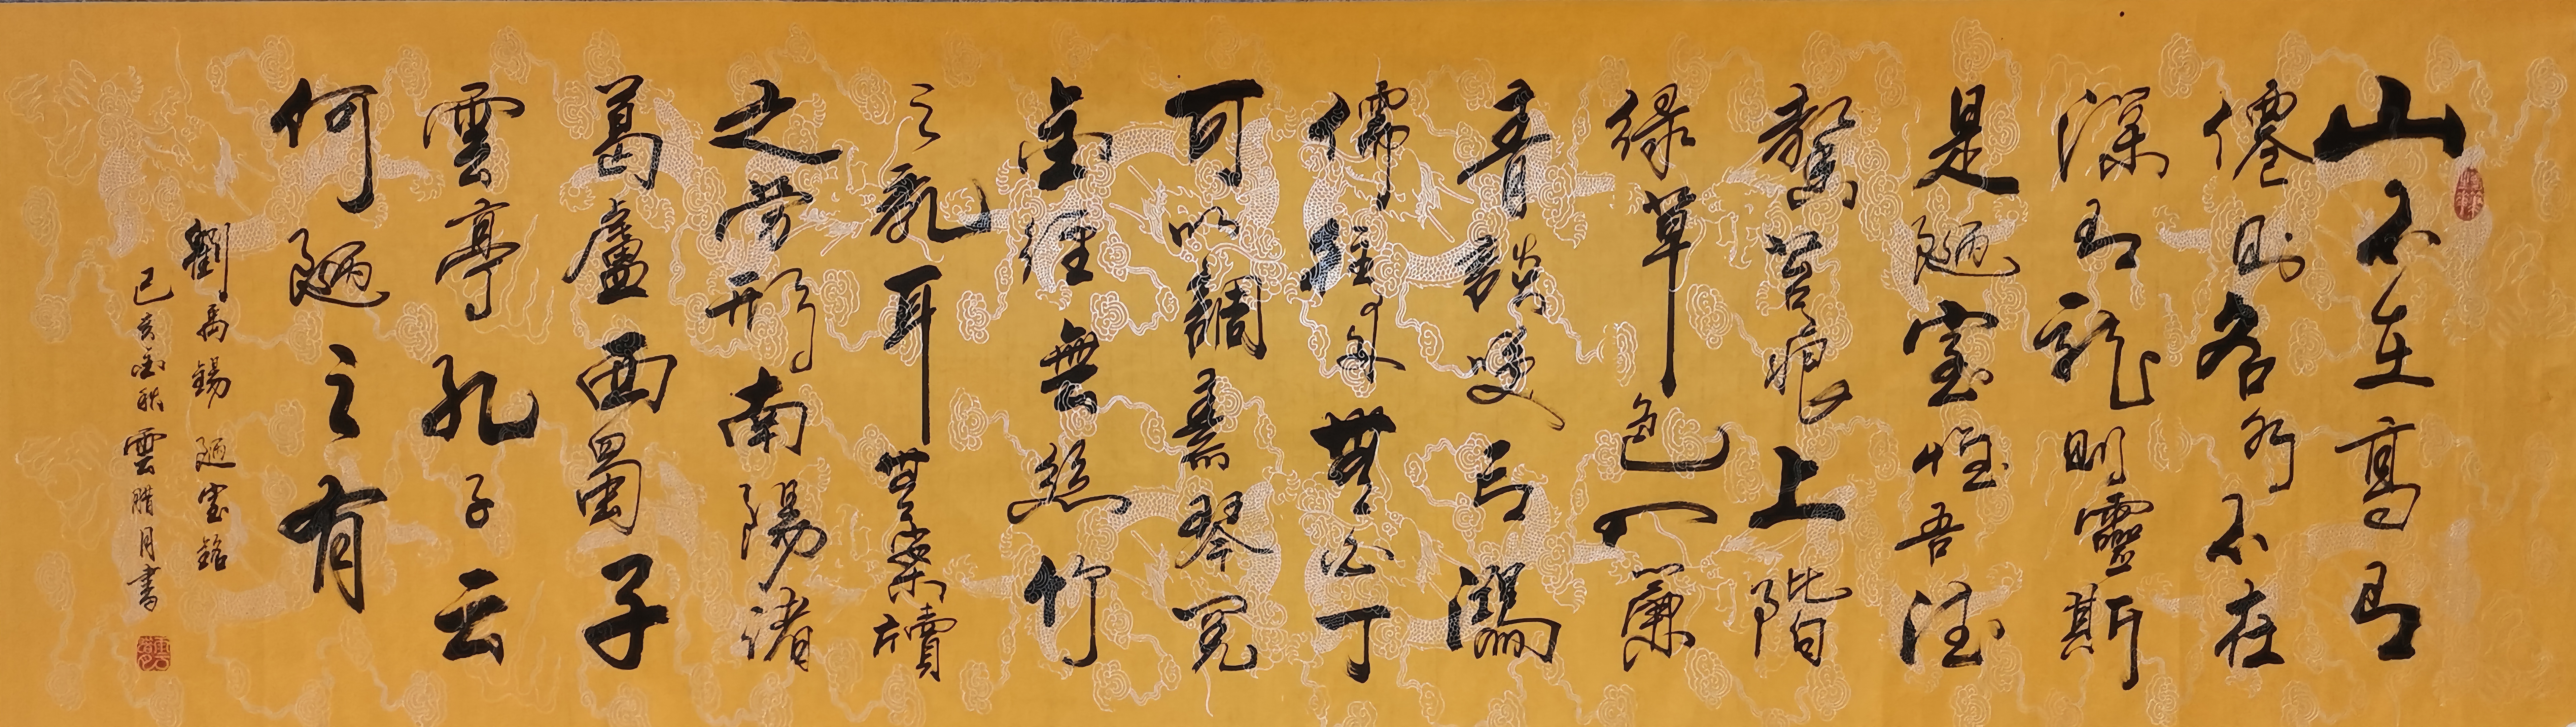 山不在高有
僊則名水不在
深有龍則靈斯
是陋室惟吾德
馨苔痕上階
綠草色入簾
青談笑有鴻
儒往來無白丁
可以調素琴閱
金經無絲竹
之亂耳無案牘
之勞形南陽諸
葛盧西蜀子
雲亭孔子云
何陋之有
劉禹錫 陋室銘
己亥金秋雲腊月書